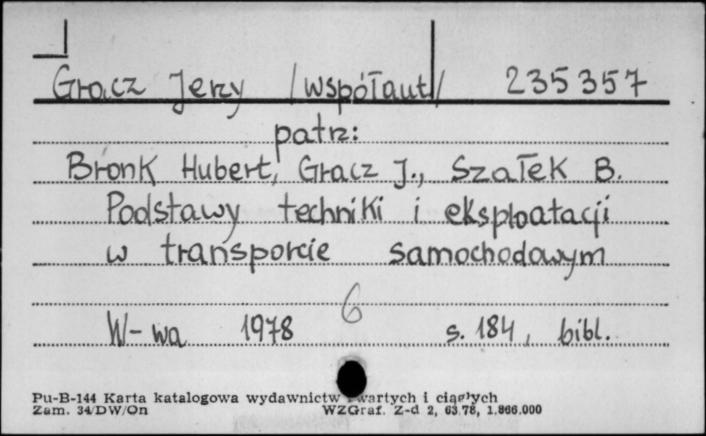 Gracz Jerzy /współaut/ 235357
patrz:
Bronk Hubert, Gracz J., Szałek B.
Podstawy techniki i eksploatacji
w transporcie samochodowym
6
W-wa 1978 s. 184, bibl.
Pu-B-144 Karta katalogowa wydawnictw zwartych i ciągłych
Zam. 34/DW/On WZGraf. Z-d 2, 63.78, 1.866.000